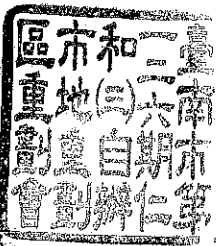 臺南市第
一二六期仁
和(二)自辦
市地重劃
區重劃會